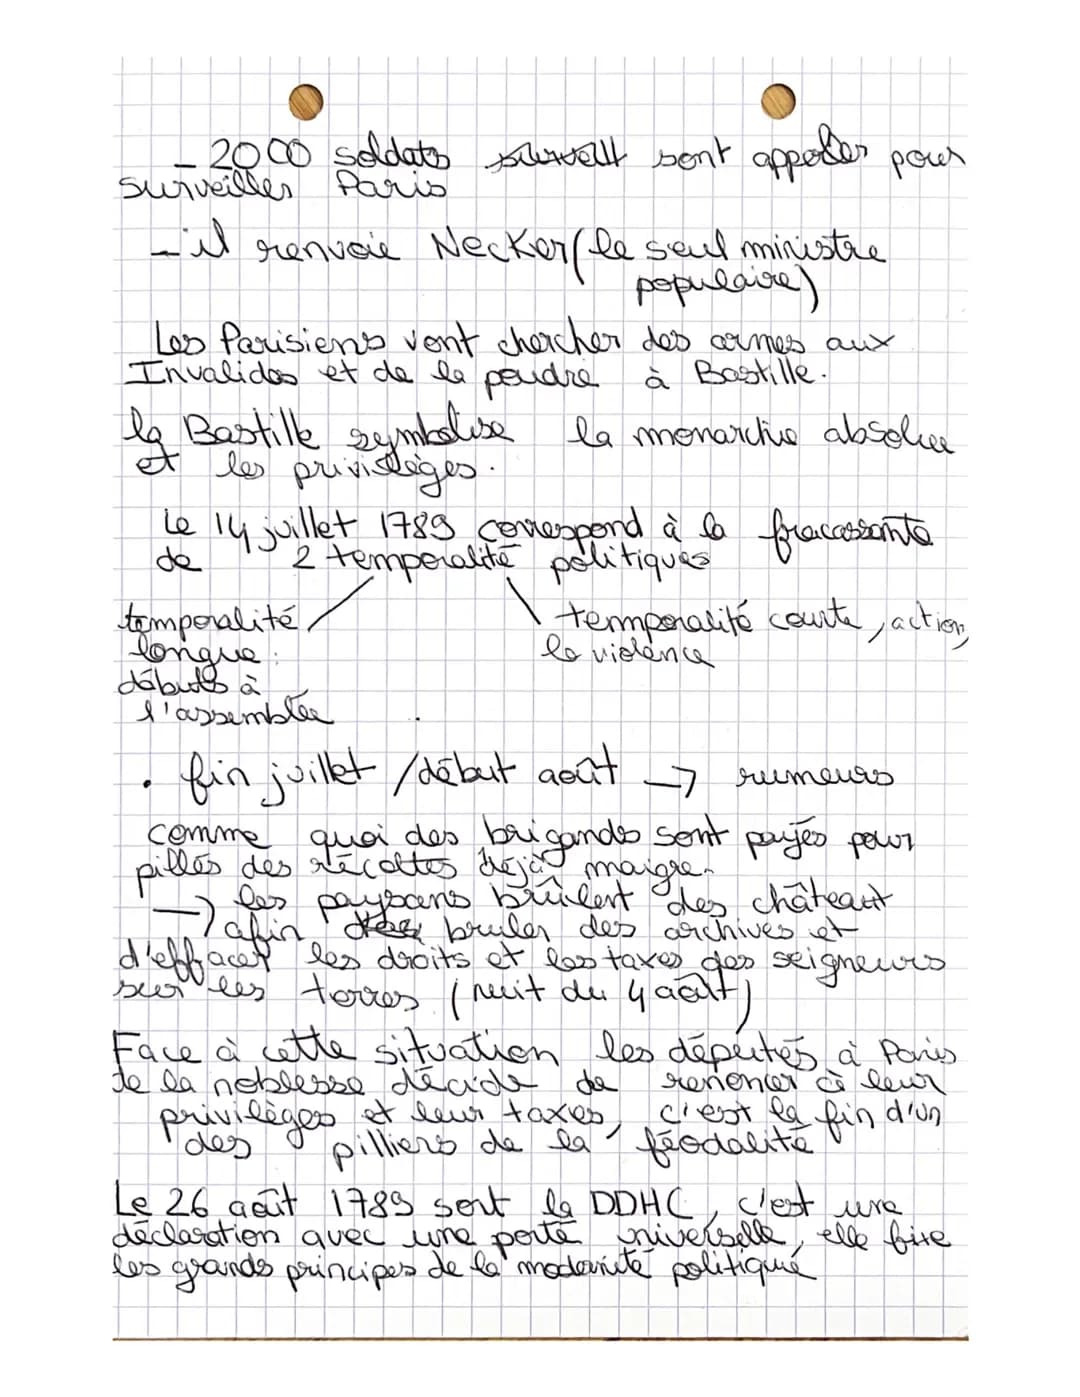 - 2000 soldats sont appeler pour
surveiller Paris
- il renvoie Necker (le seul ministre
populaire)
Les Parisiens vont chercher des armes aux
Invalides et de la poudre à Bastille.
la Bastille symbolise la monarchie absolue
et les privilèges.
Le 14 juillet 1789 correspond à la fracassante
de 2 temporalité politiques
temporalité
longue :
débuts à
l'assemblée
temmporalité courte, action,
la violence
• fin juillet / début août → rumeurs
comme quoi des brigands sont payés pour
pillés des récoltes déjà maigre.
→ les paysans brûlent des château
afin bruler des archives et
d'effacer les droits et les taxes des seigneurs
sur les terres (nuit du 4 août)
Face à cette situation les députés à Paris
de la noblesse décide de renoncer à leur
privilèges et leur taxes, c'est la fin d'un
des pilliers de la féodalité
Le 26 août 1789 sort la DDHC, c'est une
déclaration avec une porté universelle, elle fixe
les grands principes de la modernité politique